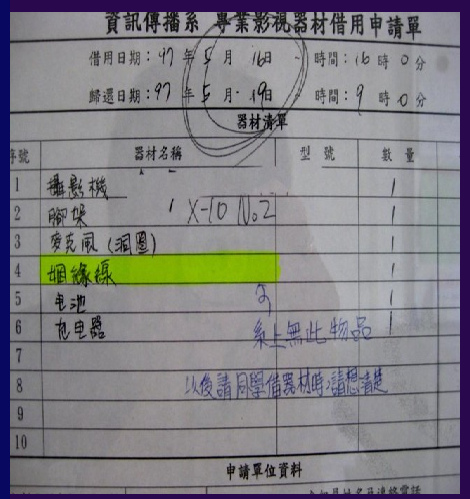 資訊傳播系 專業影視器材借用申請單
借用日期：97 年 5 月 16日 時間：16 時 0 分
歸還日期：97 年 5 月 19日 時間：9 時 0 分
器材清單
序號 器材名稱 型 號 數 量
1 攝影機 1
2 腳架 1 X-10 No2 1
3 麥克風 (洞圈) 1
4 姻緣線 1
5 电池 2 1
6 充电器 系上無此物品 1
7
8 以後請同學借器材時,請想清楚
9
10
申請單位資料